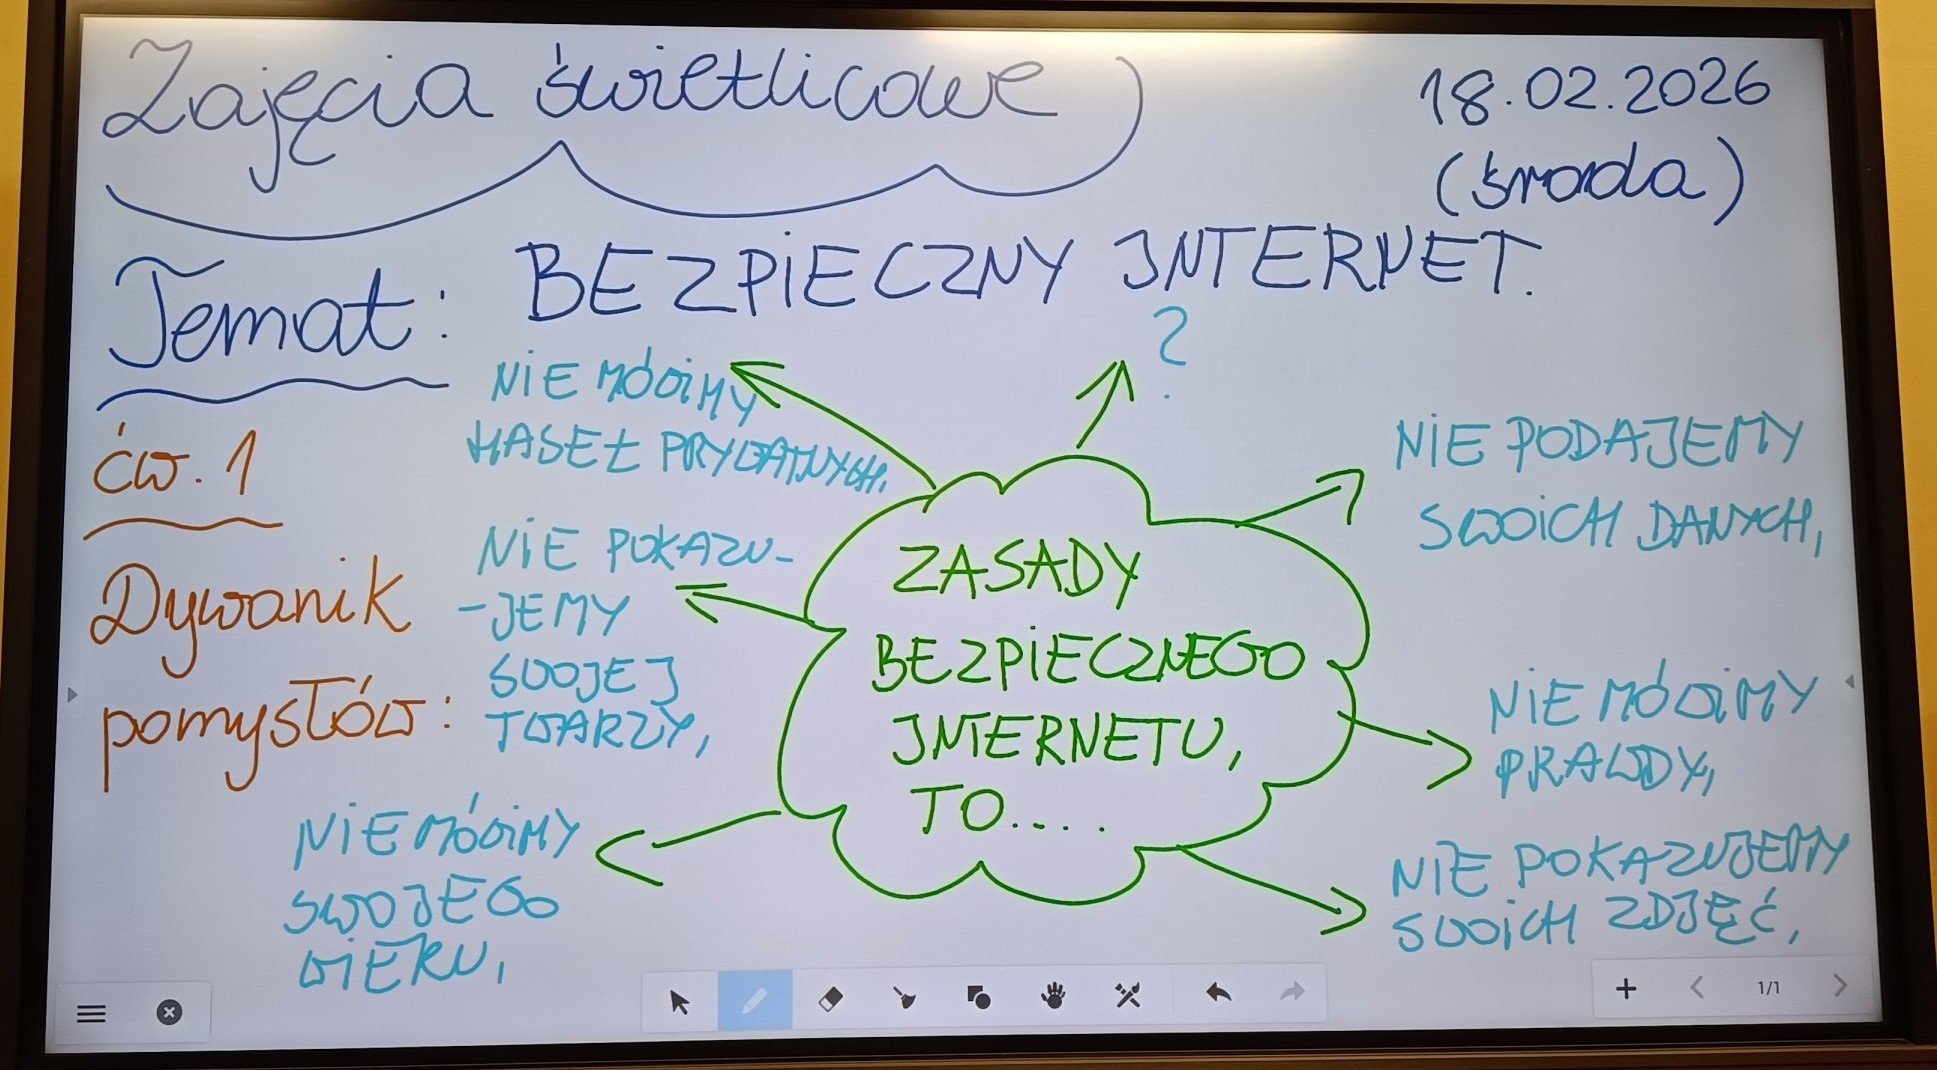 Zajęcia świetlicowe
18.02.2026
(środa)
Temat: BEZPIECZNY INTERNET.
ćw. 1
Dywanik
pomysłów:
NIE MÓWIMY
HASEŁ PRYWATNYCH,
?
NIE PODAJEMY
SWOICH DANYCH,
NIE POKAZU-
-JEMY
SWOJEJ
TWARZY,
ZASADY
BEZPIECZNEGO
INTERNETU,
TO....
NIE MÓWIMY
PRAWDY,
NIE MÓWIMY
SWOJEGO
WIEKU,
NIE POKAZUJEMY
SWOICH ZDJĘĆ,
1/1